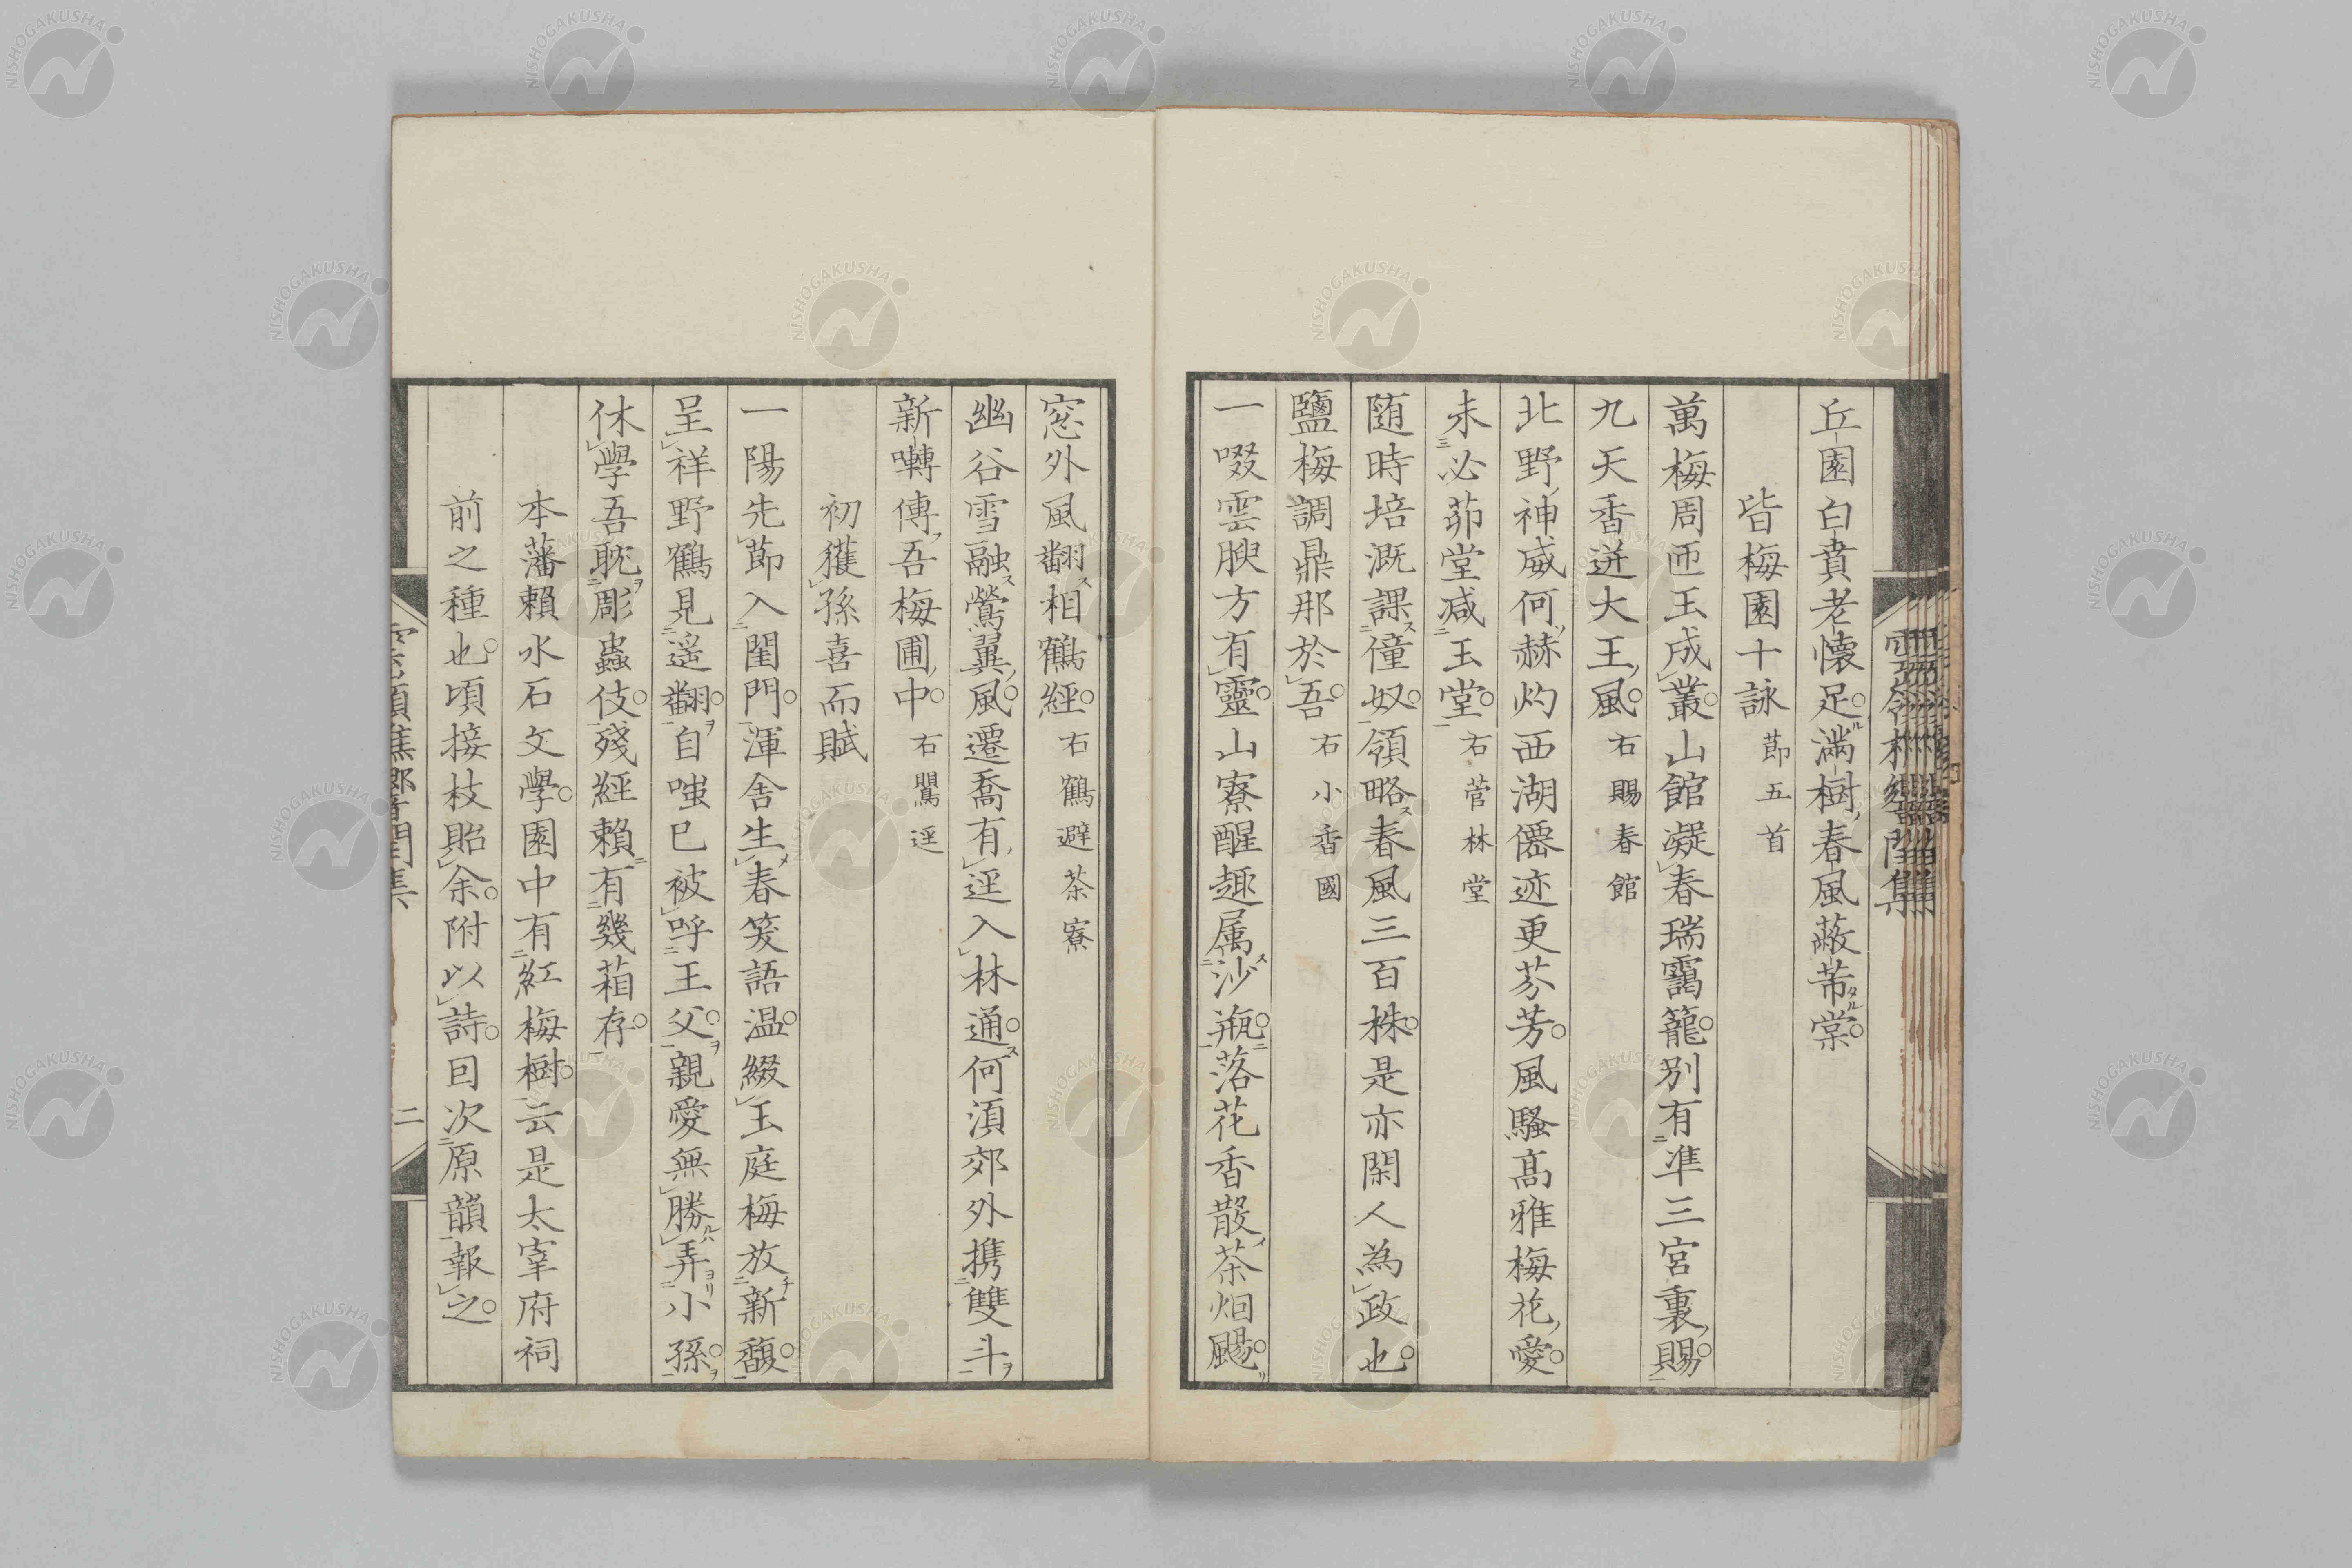 丘園白賁老懷足。滿樹春風蔽芾棠。
皆梅園十詠 節五首
萬梅周匝玉成叢。山館凝春瑞靄籠。別有準三宮裏賜。
九天香迸大王風。 右賜春館
北野神威何赫灼西湖僊迹更芬芳。風騷高雅梅花愛。
未必茆堂減玉堂。 右菅林堂
随時培溉課僮奴。領略春風三百株。是亦閑人為政也。
鹽梅調鼎那於吾。 右小香國
一啜雲腴方有靈。山寮醒趣属沙瓶。落花香散茶烟颺。
窓外風翻相鶴經。 右鶴避茶寮
幽谷雪融鶯翼風。遷喬有逕入林通。何須郊外携雙斗
新囀傳吾梅圃中。 右鸎逕
初獲孫喜而賦
一陽先節入閨門。渾舎生春笑語温。綴玉庭梅放新馥。
呈祥野鶴見遥翻。自嗤已被呼王父。親愛無勝弄小孫。
休學吾耽彫蟲伎。殘經賴有幾葙存。
本藩賴水石文學。園中有紅梅樹。云是太宰府祠
前之種也。頃接枝貽余。附以詩。因次原韻報之。
二
NISHOGAKUSHA